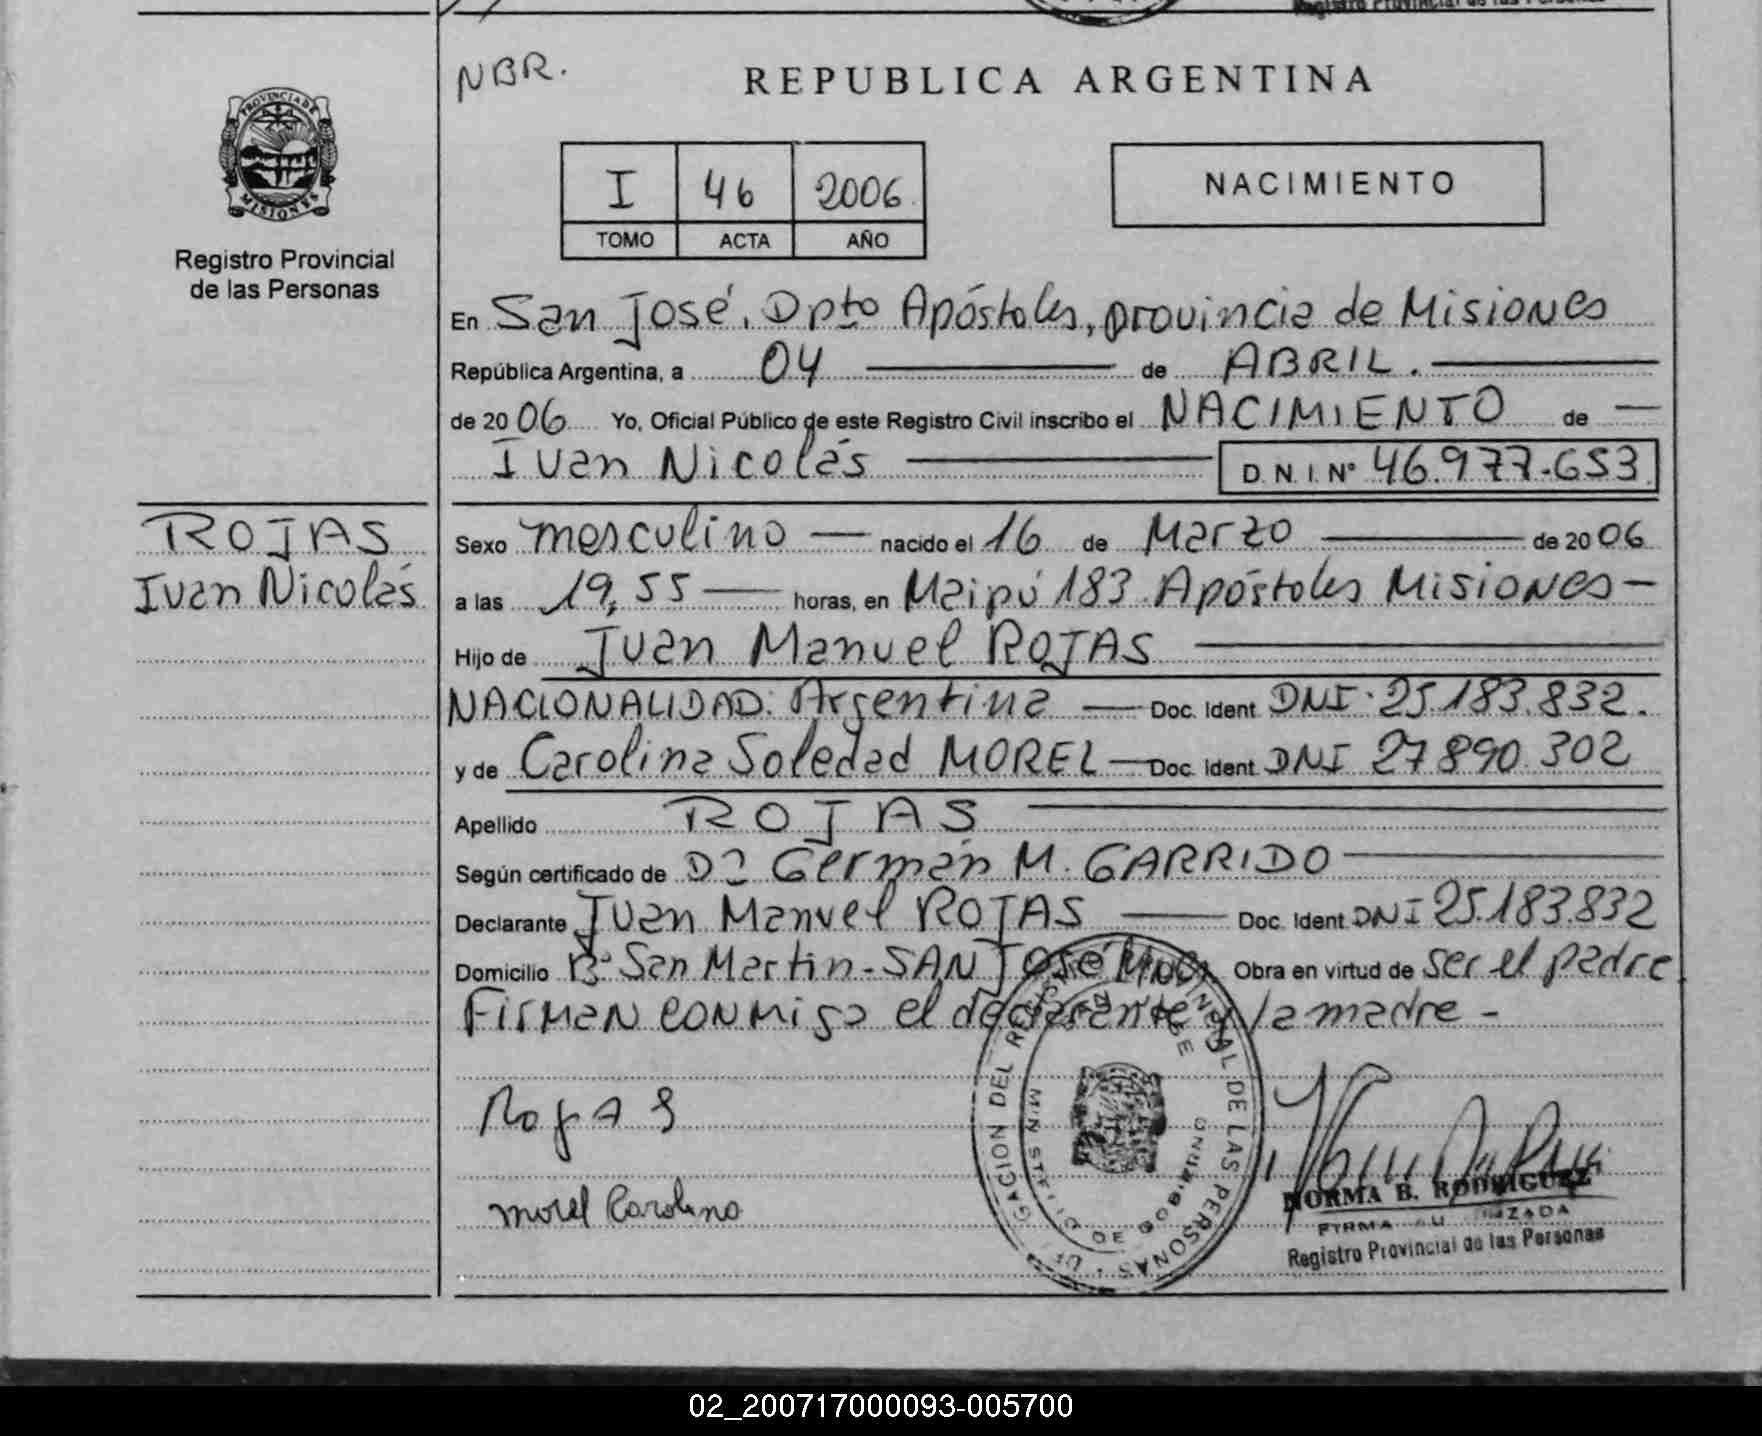 NBR.
REPUBLICA ARGENTINA
PROVINCIA DE
MISIONES
Registro Provincial
de las Personas
I 46 2006
TOMO ACTA AÑO
NACIMIENTO
En San José, Dpto Apóstoles, provincia de Misiones
República Argentina, a 04 de ABRIL.
de 2006 Yo, Oficial Público de este Registro Civil inscribo el NACIMIENTO de
Ivan Nicolás D.N.I. N° 46.977.653
ROJAS
Ivan Nicolás
Sexo masculino nacido el 16 de Marzo de 2006
a las 19,55 horas, en Maipú 183 Apóstoles Misiones
Hijo de Juan Manuel ROJAS
NACIONALIDAD: Argentina Doc. Ident DNI 25.183.832.
y de Carolina Soledad MOREL Doc. Ident DNI 27890.302
Apellido ROJAS
Según certificado de German M. GARRIDO
Declarante Juan Manuel ROJAS Doc. Ident DNI 25.183.832
Domicilio B° San Martin - SAN José Obra en virtud de ser el padre
Firman conmigo el declarante y la madre -
Rojas
Morel Carolina
DEL GENERAL DE LAS PERSONAS
NORMA B. RODRIGUEZ
FIRMA AUTORIZADA
Registro Provincial de las Personas
02_200717000093-005700